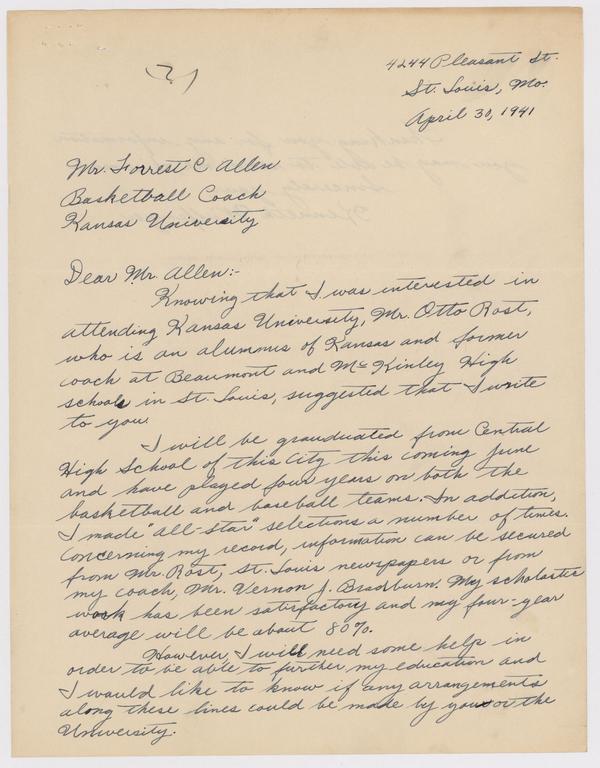 (2)
4244 Pleasant St.
St. Louis, Mo.
April 30, 1941
Mr. Forrest C Allen
Basketball Coach
Kansas University
Dear Mr. Allen:-
Knowing that I was interested in
attending Kansas University, Mr. Otto Rost,
who is an alumnus of Kansas and former
coach at Beaumont and McKinley High
schools in St. Louis, suggested that I write
to you.
I will be grauduated from Central
High School of this City this coming June
and have played four years on both the
basketball and baseball teams. In addition,
I made "all-star" selections a number of times.
Concerning my record, information can be secured
from Mr. Rost, St. Louis newspapers or from
my coach, Mr. Vernon J. Bradburn. My scholastic
work has been satisfactory and my four-year
average will be about 80%.
However, I will need some help in
order to be able to further my education and
I would like to know if any arrangements
along these lines could be made by you or the
University.